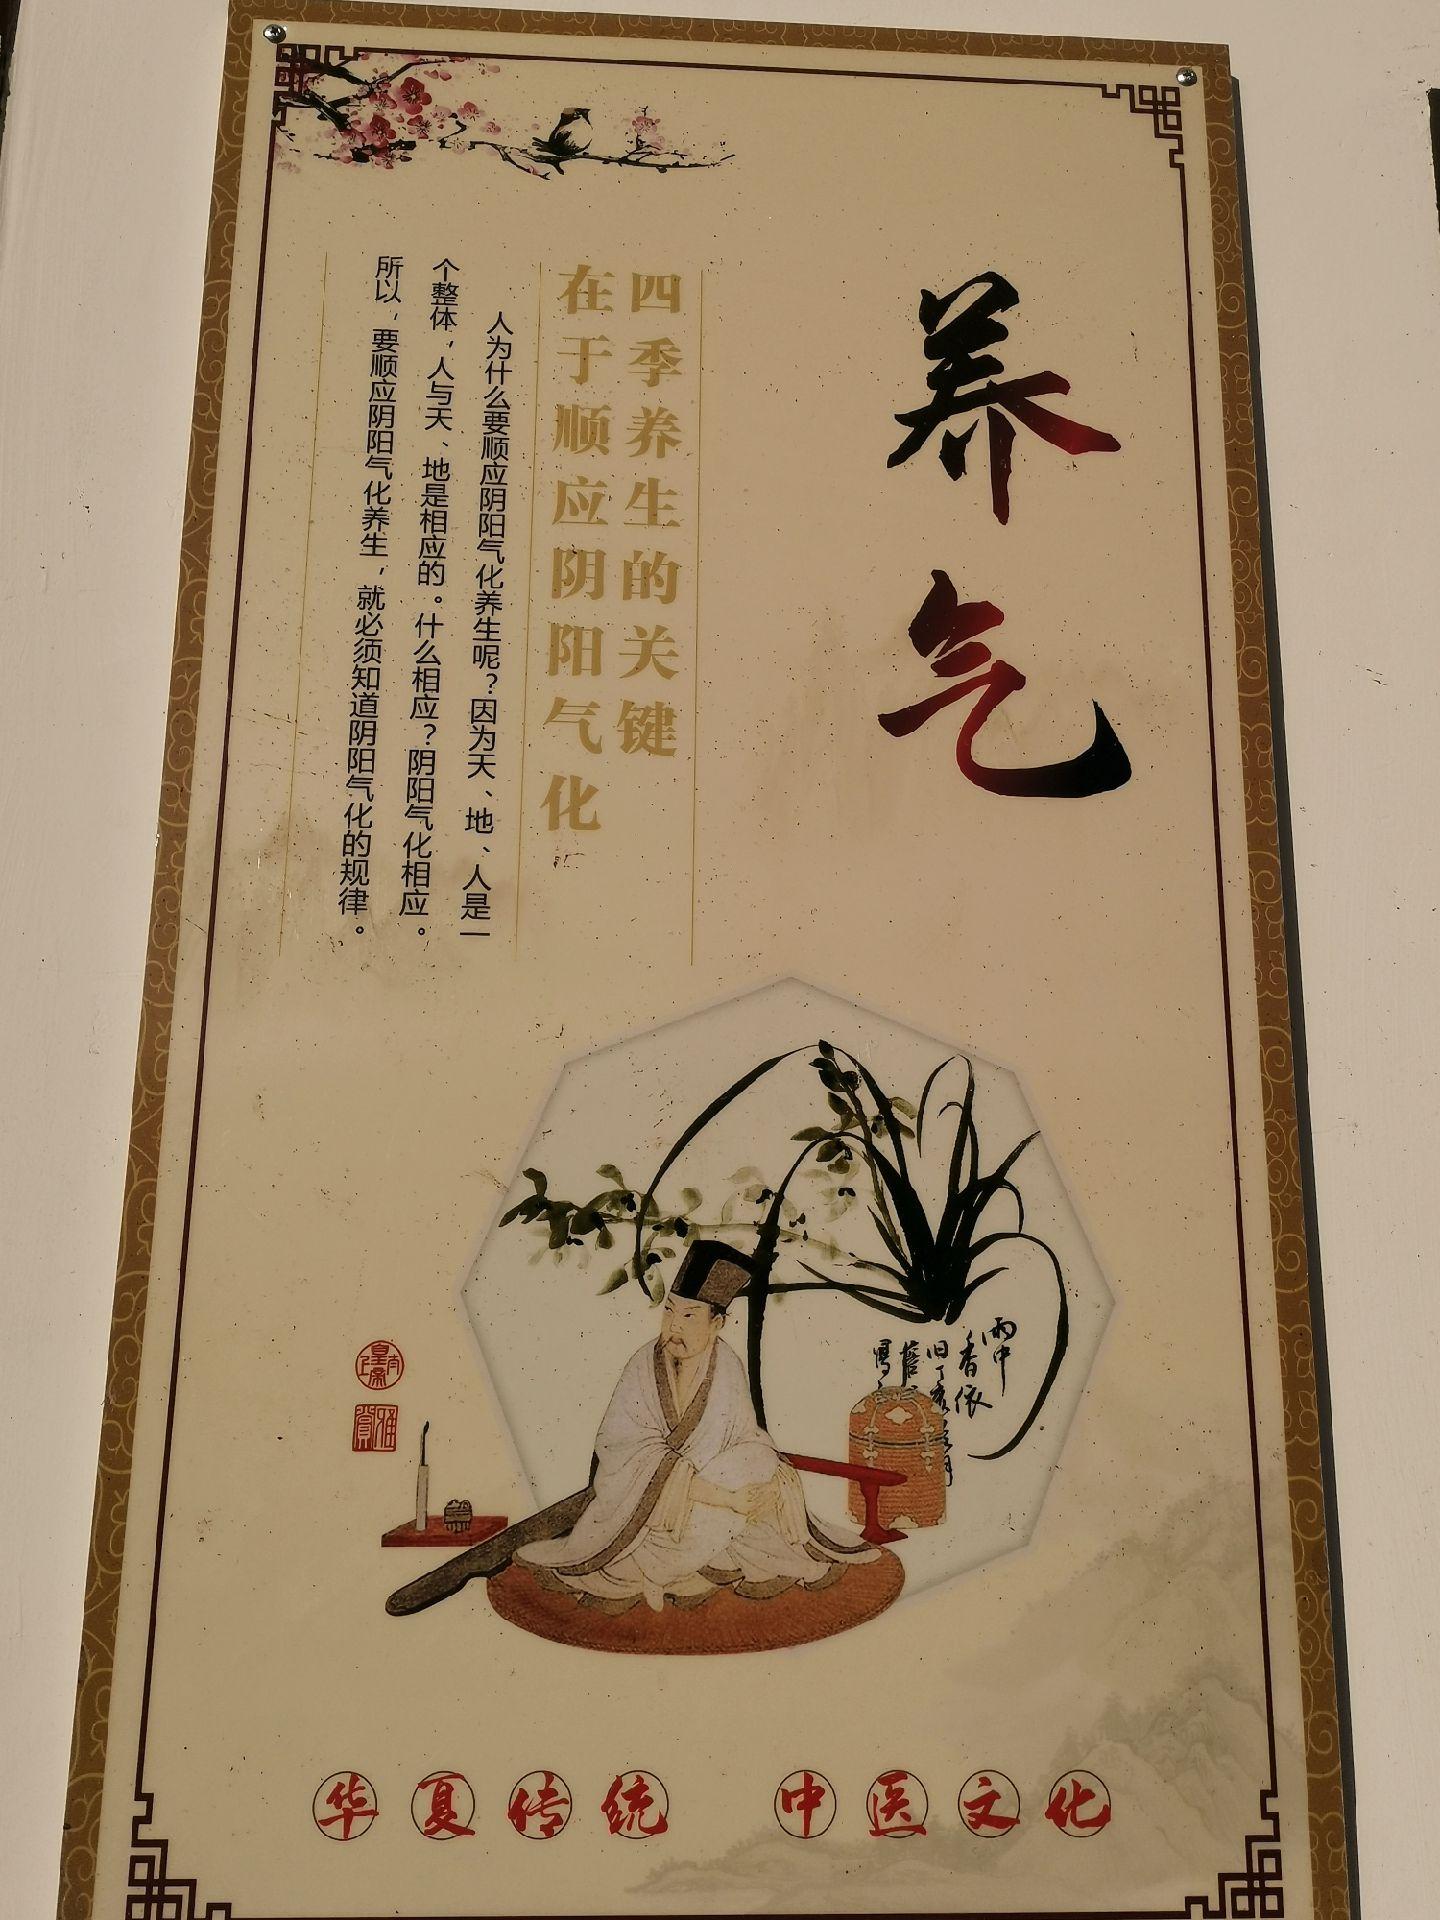 养气
四季养生的关键
在于顺应阴阳气化
人为什么要顺应阴阳气化养生呢？因为天、地、人是一
个整体，人与天、地是相应的。什么相应？阴阳气化相应。
所以，要顺应阴阳气化养生，就必须知道阴阳气化的规律。
雨中
香依
雅赏
华夏传统 中医文化